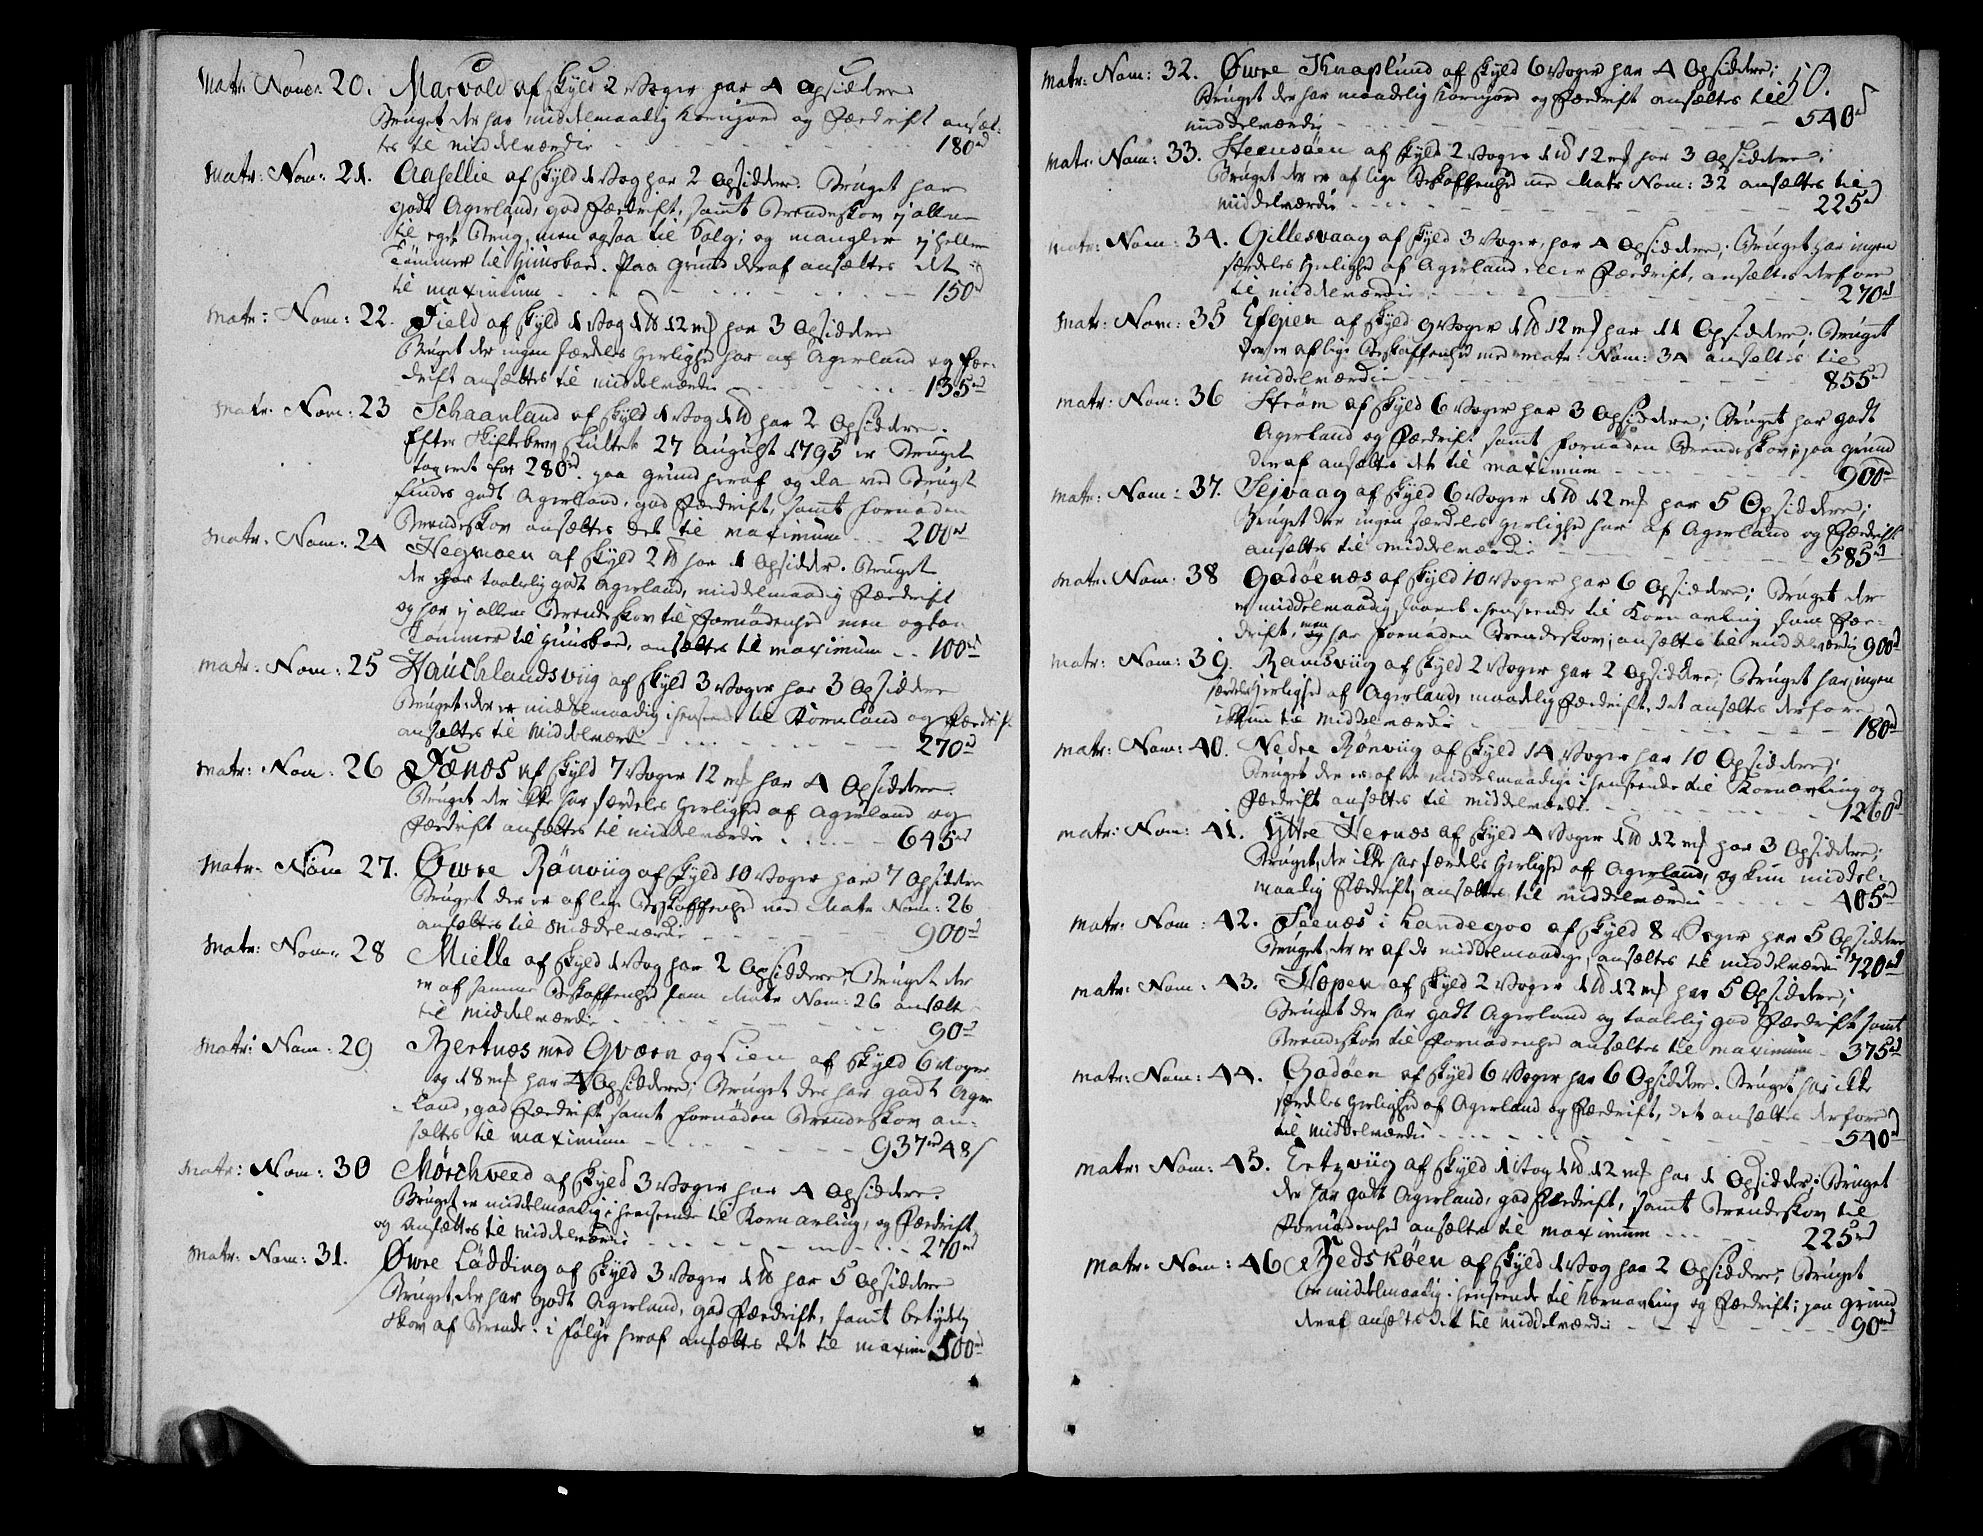 Matr: Nom: 20. Marvold af Skyld 2 Voger har 4 Opsiddere
Bruget der har middelmaadig Kornjord og Fædrift ansæt-
tes til middelværdie 180rd
Matr: Nom: 21. Aasellie af Skyld 1 Vog har 2 Opsiddere. Bruget har
godt Agerland, god Fædrift, samt Brendeskov ej allene
til eget Brug, men ogsaa til Salg; og mangler ej heller
Tømmer til Huusboed. Paa Grund deraf ansættes det
til maximum 150rd
Matr: Nom: 22. Field af Skyld 1 Vog 1 lb 12 mf har 3 Opsiddere
Bruget der ingen særdeles Herlighed har af Agerland og Fæe-
drift ansættes til middelværdie 135rd
Matr. Nom: 23 Schaanland af Skyld 1 Vog 1 lb har 2 Opsiddere.
Efter Skiftebrev sluttet 27 august 1795 er Bruget
taxeret for 280rd. paa Grund heraf og da ved Bruget
findes godt Agerland, god Fædrift, samt fornøden
Brendeskov ansættes det til maximum 200rd
Matr. Nom: 24 Hegmoen af Skyld 2 lb har 1 Opsidder. Bruget
der har taalelig godt Agerland, middelmaadig Fædrift
og har ej allene Brendeskov til Fornødenhed men ogsaa
Tømmer til Huusboed, ansættes til maximum 100rd
Matr: Nom: 25 Hauchlandsviig af Skyld 3 Voger har 3 Opsiddere
Bruget der er middelmaadig i henseende til Kornland og Fædrift
ansættes til Middelværdie 270rd
Matr: Nom: 26 Fænæs af Skyld 7 Voger 12 mf har 4 Opsiddere.
Bruget der ikke har særdeles Herlighed af Agerland og
Fædrift ansættes til middelværdie 645rd
Matr: Nom 27. Øwre Rønviig af Skyld 10 Voger har 7 Opsiddere
Bruget der er af lige Beskaffenhed med Matr Nom: 26
ansættes til Middelværdie 900rd
Matr: Nom: 28 Mielle af Skyld 1 Vog har 2 Opsiddere, Bruget der
er af samme Beskaffenhed som Matr Nom: 26 ansættes
til Middelværdie 90rd
Matr: Nom: 29 Bertnæs med Gværn og Lien af Skyld 6 Voger
og 18 mf har 4 Opsiddere; Bruget der har godt Ager-
land, god Fædrift samt fornøden Brendeskov an-
sættes til maximum 937rd 48s
Matr: Nom: 30 Mørchveed af Skyld 3 Voger har 4 Opsiddere.
Bruget er middelmaadig i henseende til Kornavling, og Fædrift,
og ansættes til Middelværdie 270rd
Matr: Nom: 31. Øvre Lødding af Skyld 3 Voger 1 lb har 5 Opsiddere
Bruget, der har godt Agerland, god Fædrift, samt betydelig
Skov af Brende. i følge heraf ansættes det til maxim: 500rd
50.
Matr: Nom: 32. Øwre Knaplund af Skyld 6 Voger har 4 Opsiddere;
Bruget der har maadelig Kornjord og Fædrift ansættes til
middelværdie 540rd
Matr: Nom: 33. Steensøen af Skyld 2 Voger 1 lb 12 mf har 3 Opsiddere;
Bruget der er af lige Beskaffenhed med Matr Nom: 32 ansættes til
middelværdie 225rd
Matr: Nom: 34. Gillesvaag af Skyld 3 Voger, har 4 Opsiddere; Bruget har ingen
særdeles Herlighed af Agerland eller Fædrift, ansættes derfore
til middelværdie 270rd
Matr: Nom: 35 Espen af Skyld 9 Voger 1 lb 12 mf har 11 Opsiddere; Bruget
der er af lige Beskaffenhed med Matr: Nom: 34 ansættes til
middelværdie 855rd
Matr: Nom: 36 Strøm af Skyld 6 Voger har 3 Opsiddere; Bruget har godt
Agerland og Fædrift samt fornøden Brendeskov; paa Grund
deraf ansættes det til maximum 900rd
Matr: Nom: 37. Sejvaag af Skyld 6 Voger 1 lb 12 mf har 5 Opsiddere;
Bruget der ingen særdeles Herlighed har af Agerland og Fædrift
ansættes til middelværdie 585rd
Matr: Nom: 38 Godøenæs af Skyld 10 Voger har 6 Opsiddere; Bruget der
er middelmaadig, saavel i henseende til Kornavling som Fæe-
drift, men har fornøden Brendeskov; ansættes til middelværdie 900rd
Matr: Nom: 39. Ramsviig af Skyld 2 Voger har 2 Opsiddere; Bruget har ingen
særdeles Herlighed af Agerland, maadelig Fædrift, det ansættes derfore
ikkun til Middelværdie 180rd
Matr: Nom: 40. Nedre Rønviig af Skyld 14 Voger har 10 Opsiddere;
Bruget der er af de middelmaadige i henseende til Kornavling og
Fædrift ansættes til middelværdie 1260rd
Matr: Nom: 41. Yttre Hernæs af Skyld 4 Voger 1 lb 12 mf har 3 Opsiddere;
Bruget, der ikke har særdeles Herlighed af Agerland, og kun middel-
maadig Fædrift, ansættes til middelværdie 405rd
Matr: Nom: 42. Seenæs i Landegoo af Skyld 8 Voger har 5 Opsiddere
Bruget, der er af de middelmaadige, ansættes til middelværdie 720rd
Matr: Nom: 43. Hopen af Skyld 2 Voger 1 lb 12 mf har 5 Opsiddere;
Bruget der har godt Agerland og taalelig god Fædrift samt
Brendeskov til Fornødenhed ansættes til maximum 375rd
Matr: Nom: 44. Godøen af Skyld 6 Voger har 6 Opsiddere. Bruget har ikke
særdeles Herlighed af Agerland og Fædrift, det ansættes derfore
til Middelværdie 540rd
Matr: Nom: 45. Eetzviig af Skyld 1 Vog 1 lb 12 mf har 1 Opsidder; Bruget
der har godt Agerland, god Fædrift, samt Brendeskov til
Fornødenhed ansættes til maximum 225rd
Matr. Nom: 46 Bedskøen af Skyld 1 Vog har 2 Opsiddere; Bruget
er middelmaadig i henseende til Kornavling og Fædrift; paa Grund
deraf ansættes det til middelværdie 90rd